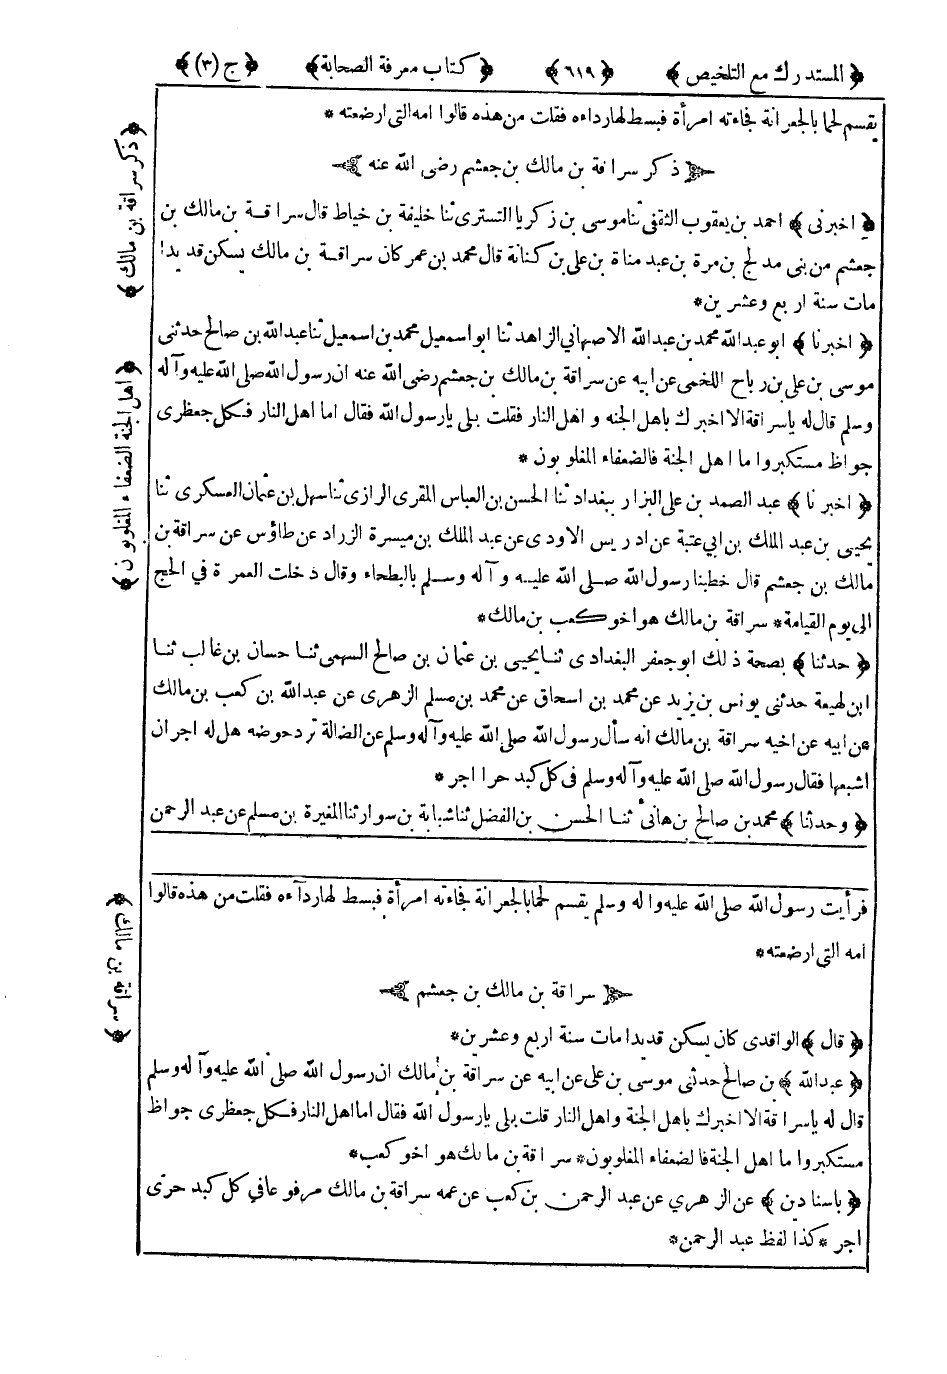 ﴿ المستدرك مع التلخيص ﴾ ﴿ ٦١٩ ﴾ ﴿ كتاب معرفة الصحابة ﴾ ﴿ ج (٣) ﴾
يقسم لحما بالجعرانة فجاءته امرأة فبسط لها رداءه فقلت من هذه قالوا امه التى ارضعته *
ذكر سراقة بن مالك بن جعشم رضى الله عنه
﴿ اخبرنى ﴾ احمد بن يعقوب الثقفى ثنا موسى بن زكريا التسترى ثنا خليفة بن خياط قال سراقة بن مالك بن
جعشم من بنى مدلج بن مرة بن عبد مناة بن على بن كنانة قال محمد بن عمر كان سراقة بن مالك يسكن قديدا
مات سنة اربع وعشرين *
﴿ اخبرنا ﴾ ابو عبد الله محمد بن عبد الله الاصبهاني الزاهد ثنا ابو اسمعيل محمد بن اسمعيل ثنا عبد الله بن صالح حدثنى
موسى بن على بن رباح اللخمى عن ابيه عن سراقة بن مالك بن جعشم رضى الله عنه ان رسول الله صلى الله عليه وآله
وسلم قال له يا سراقة الا اخبرك باهل الجنه و اهل النار فقلت بلى يا رسول الله فقال اما اهل النار فكل جعظرى
جواظ مستكبر واما اهل الجنة فالضعفاء المغلوبون *
﴿ اخبرنا ﴾ عبد الصمد بن على البزار ببغداد ثنا الحسن بن العباس المقرى الرازى ثنا سهل بن عثمان العسكرى ثنا
يحيى بن عبد الملك بن ابي عتبة عن ادريس الاودى عن عبد الملك بن ميسرة الزراد عن طاؤس عن سراقة بن
مالك بن جعشم قال خطبنا رسول الله صلى الله عليه وآله وسلم بالبطحاء وقال دخلت العمرة في الحج
الى يوم القيامة * سراقة بن مالك هو اخو كعب بن مالك *
﴿ حدثنا ﴾ بصحة ذلك ابو جعفر البغدادى ثنا يحيى بن عثمان بن صالح السهمى ثنا حسان بن غالب ثنا
ابن لهيعة حدثنى يونس بن يزيد عن محمد بن اسحاق عن محمد بن مسلم الزهرى عن عبد الله بن كعب بن مالك
عن ابيه عن اخيه سراقة بن مالك انه سأل رسول الله صلى الله عليه وآله وسلم عن الضالة ترد حوضه هل له اجر ان
اشبعها فقال رسول الله صلى الله عليه وآله وسلم فى كل كبد حرا اجر *
﴿ وحدثنا ﴾ محمد بن صالح بن هانئ ثنا الحسن بن الفضل ثنا شبابة بن سوار ثنا المغيرة بن مسلم عن عبد الرحمن
فرأيت رسول الله صلى الله عليه واله وسلم يقسم لحما بالجعرانة فجاءته امرأة فبسط لها رداءه فقلت من هذه قالوا
امه التي ارضعته *
سراقة بن مالك بن جعشم
﴿ قال ﴾ الواقدى كان يسكن قديدا مات سنة اربع وعشرين *
﴿ عبد الله ﴾ بن صالح حدثنى موسى بن على عن ابيه عن سراقة بن مالك ان رسول الله صلى الله عليه وآله وسلم
قال له يا سراقة الا اخبرك باهل الجنة واهل النار قلت بلى يا رسول الله فقال اما اهل النار فكل جعظرى جواظ
مستكبر واما اهل الجنة فالضعفاء المغلوبون * سراقة بن مالك هو اخو كعب *
﴿ باسنادين ﴾ عن الزهري عن عبد الرحمن بن كعب عن عمه سراقة بن مالك مرفوعا في كل كبد حرى
اجر * كذا لفظ عبد الرحمن *
﴿ ذكر سراقة بن مالك ﴾
﴿ اهل الجنة الضعفاء المغلوبون ﴾
﴿ سراقة بن مالك ﴾